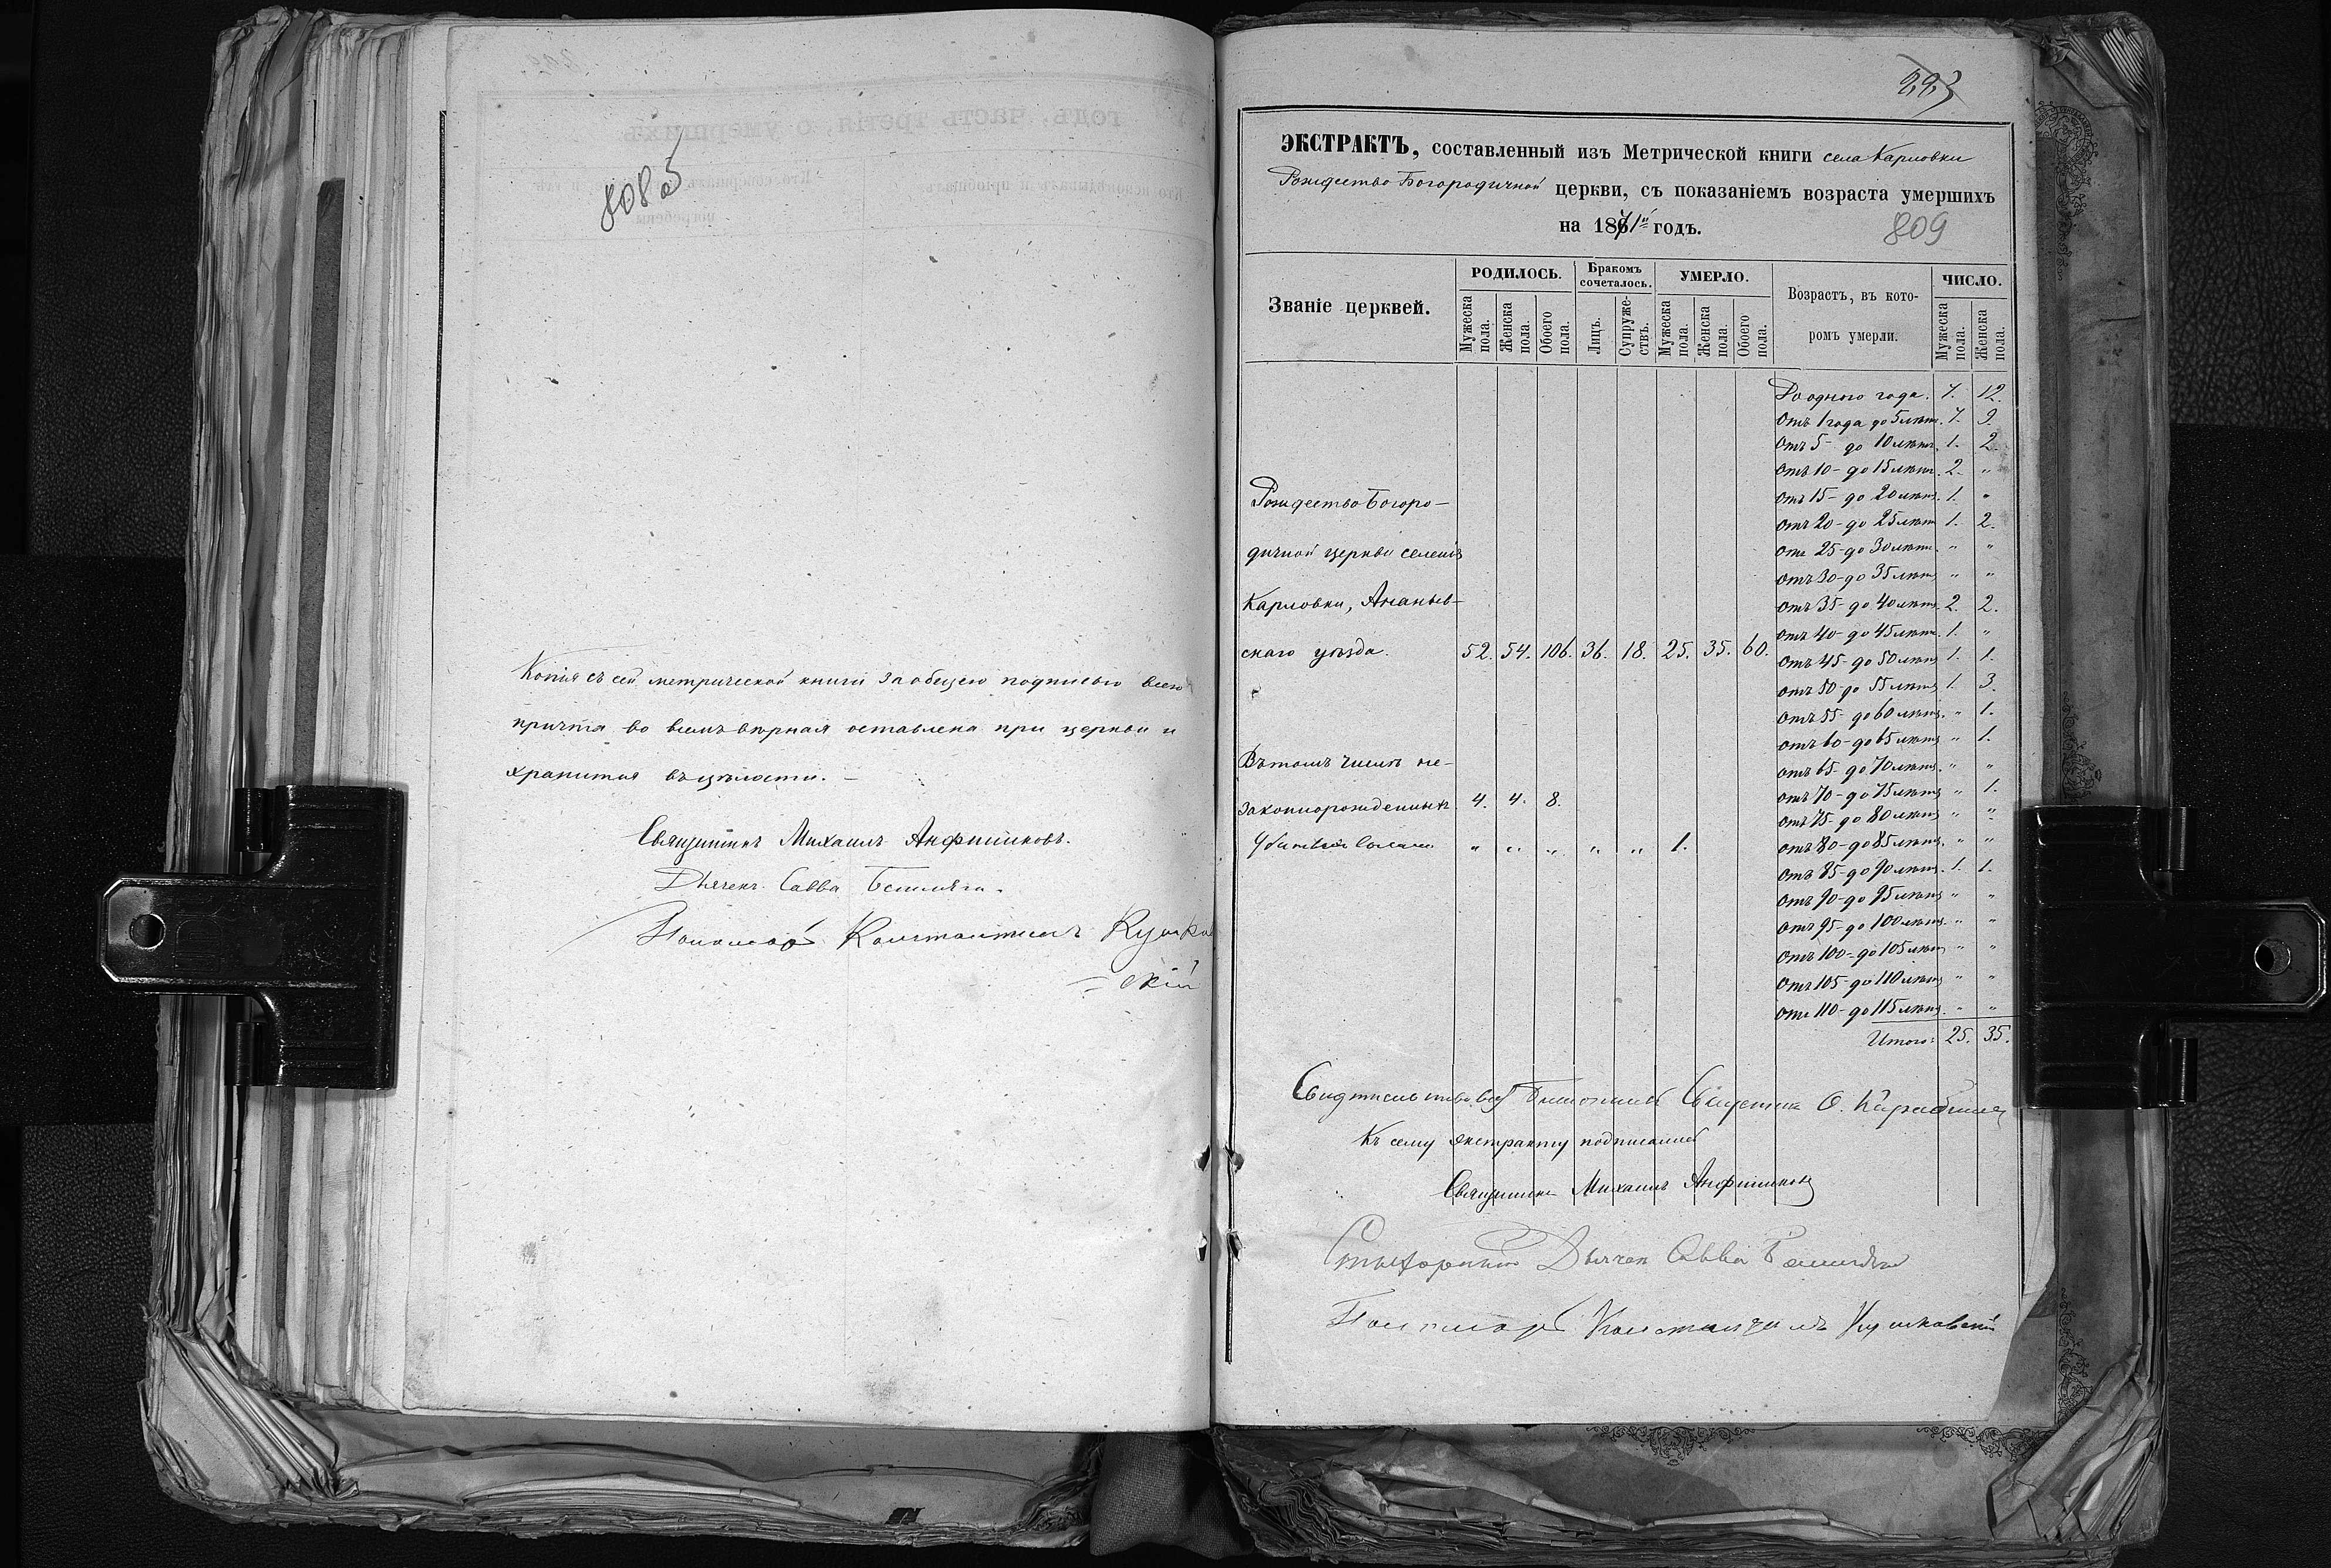 808 об
Копія съ сей метрической книги за общею подписью всего
причта во всемъ вѣрная оставлена при церкви и
хранится въ цѣлости. –
Священникъ Михаилъ Анфиликовъ.
Дьячекъ Савва
Пономарь Константинъ Кушков
= скій
293
ЭКСТРАКТЪ, составленный изъ Метрической книги села Карловки
Рождество Богородичной церкви, съ показаніемъ возраста умершихъ
на 1871й годъ.
809
Званіе церквей.
РОДИЛОСЬ.
Мужеска пола.
Женска пола.
Обоего пола.
Бракомъ сочеталось.
Лицъ.
Супружествъ.
УМЕРЛО.
Мужеска пола.
Женска пола.
Обоего пола.
Возрастъ, въ кото-
ромъ умерли.
ЧИСЛО.
Мужеска пола.
Женска пола.
Рождество Богоро-
дичной церкви селенія
Карловки, Ананьев-
скаго уѣзда. 52. 54. 106. 36. 18. 25. 35. 60.
Въ томъ числѣ не-
законнорожденныхъ 4. 4. 8.
" " " " " 1.
До одного года. 7. 12.
Отъ 1 года до 5 лѣтъ. 7. 9.
Отъ 5 - до 10 лѣтъ. 1. 2.
Отъ 10 - до 15 лѣтъ. 2. "
Отъ 15 - до 20 лѣтъ. 1. "
Отъ 20 - до 25 лѣтъ 1. 2.
Отъ 25 - до 30 лѣтъ. " "
Отъ 30 - до 35 лѣтъ " "
Отъ 35 - до 40 лѣтъ. 2. 2.
Отъ 40 - до 45 лѣтъ. 1. "
Отъ 45 - до 50 лѣтъ 1. 1.
Отъ 50 - до 55 лѣтъ 1. 3.
Отъ 55 - до 60 лѣтъ. " 1.
Отъ 60 - до 65 лѣтъ " 1.
Отъ 65 - до 70 лѣтъ. " "
Отъ 70 - до 75 лѣтъ " 1.
Отъ 75 - до 80 лѣтъ " "
Отъ 80 - до 85 лѣтъ. " "
Отъ 85 - до 90 лѣтъ. 1. 1.
Отъ 90 - до 95 лѣтъ " "
Отъ 95 - до 100 лѣтъ. " "
Отъ 100 - до 105 лѣтъ " "
Отъ 105 - до 110 лѣтъ " "
Отъ 110 - до 115 лѣтъ. " "
Итого: 25. 35.
Къ сему экстракту подписались
Священникъ Михаилъ Анфиликовъ
Стихарный Дьячек Савва
Пономарь Константинъ Кушковскій